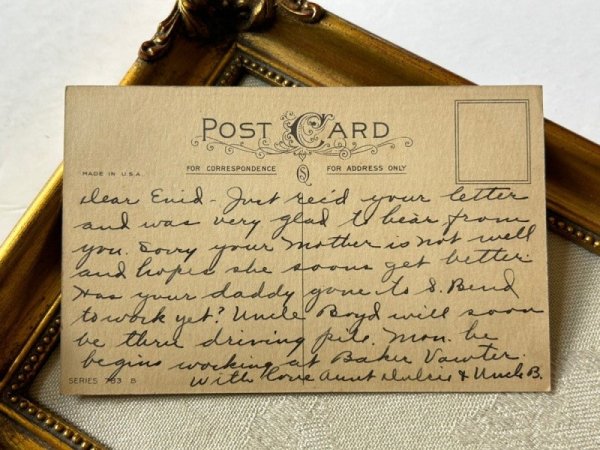 POST CARD
FOR CORRESPONDENCE
FOR ADDRESS ONLY
MADE IN U.S.A.
Dear Enid - Just rec'd your letter
and was very glad to hear from
you. Sorry your Mother is not well
and hopes she soons get better.
Has your daddy gone to S. Bend
to work yet? Uncle Boyd will soon
be thru driving pile. Mon. he
begins working at Baker Vawter.
With Love Aunt Dulcie & Uncle B.
SERIES 783 B